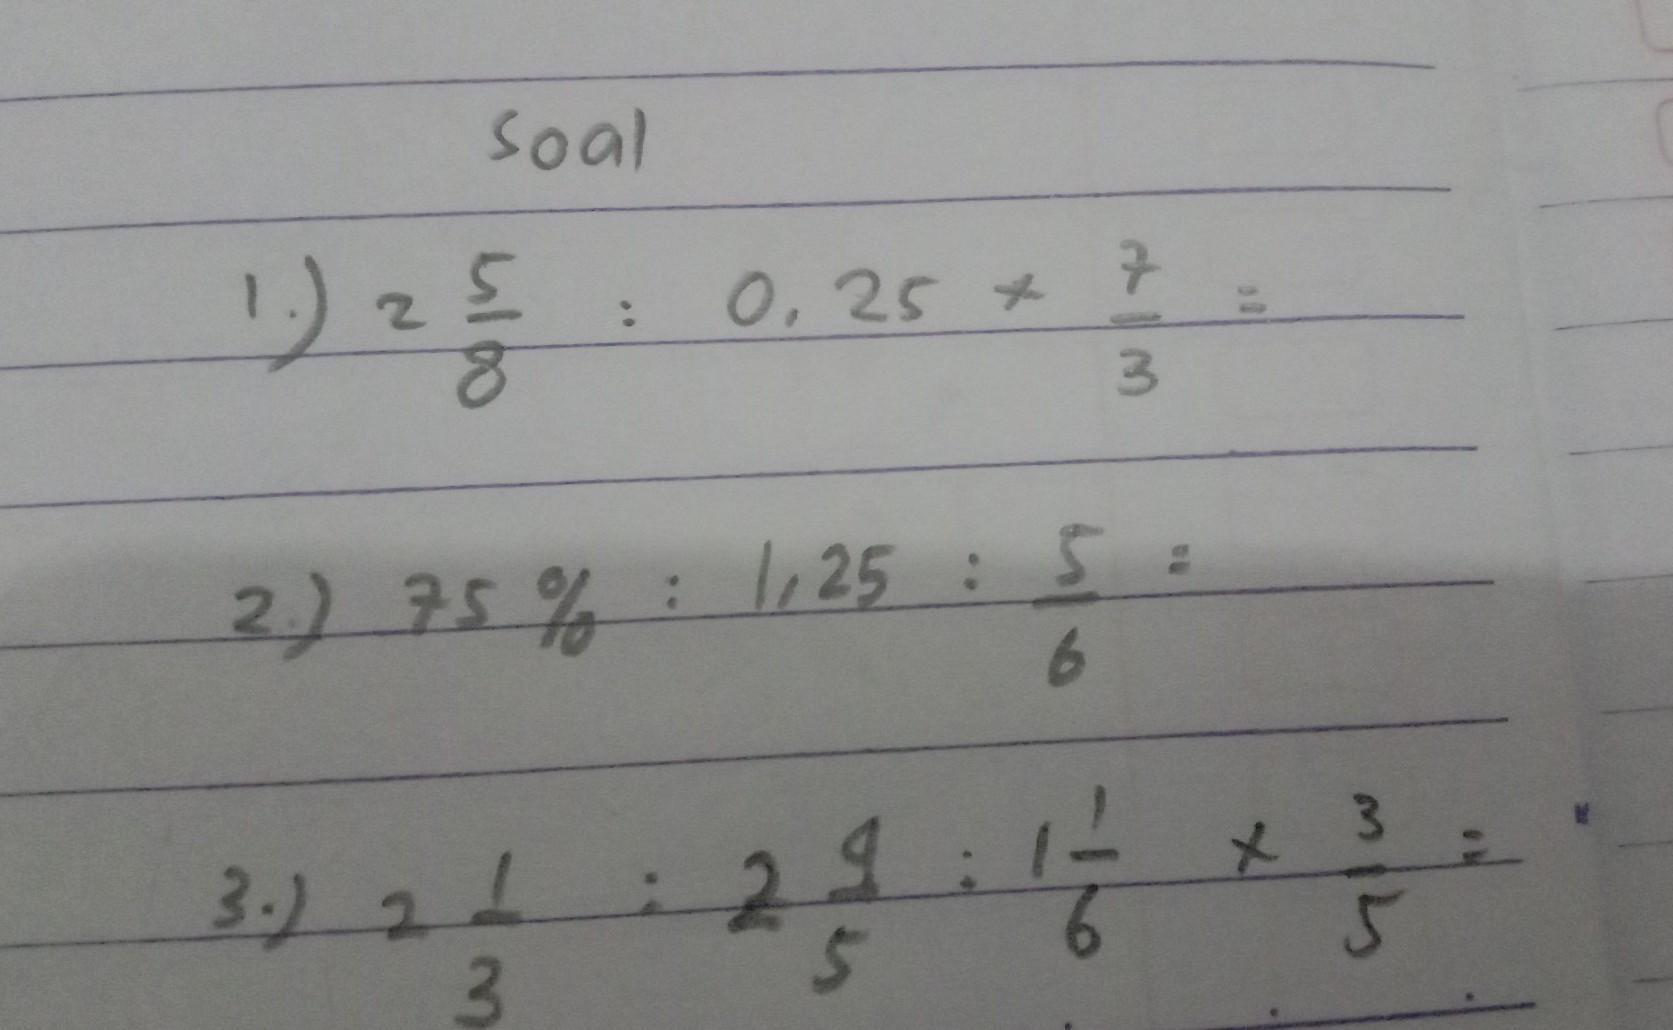 Soal
1.) 2 5/8 : 0,25 × 7/3 =
2.) 75 % : 1,25 : 5/6 =
3.) 2 1/3 : 2 4/5 : 1 1/6 × 3/5 =